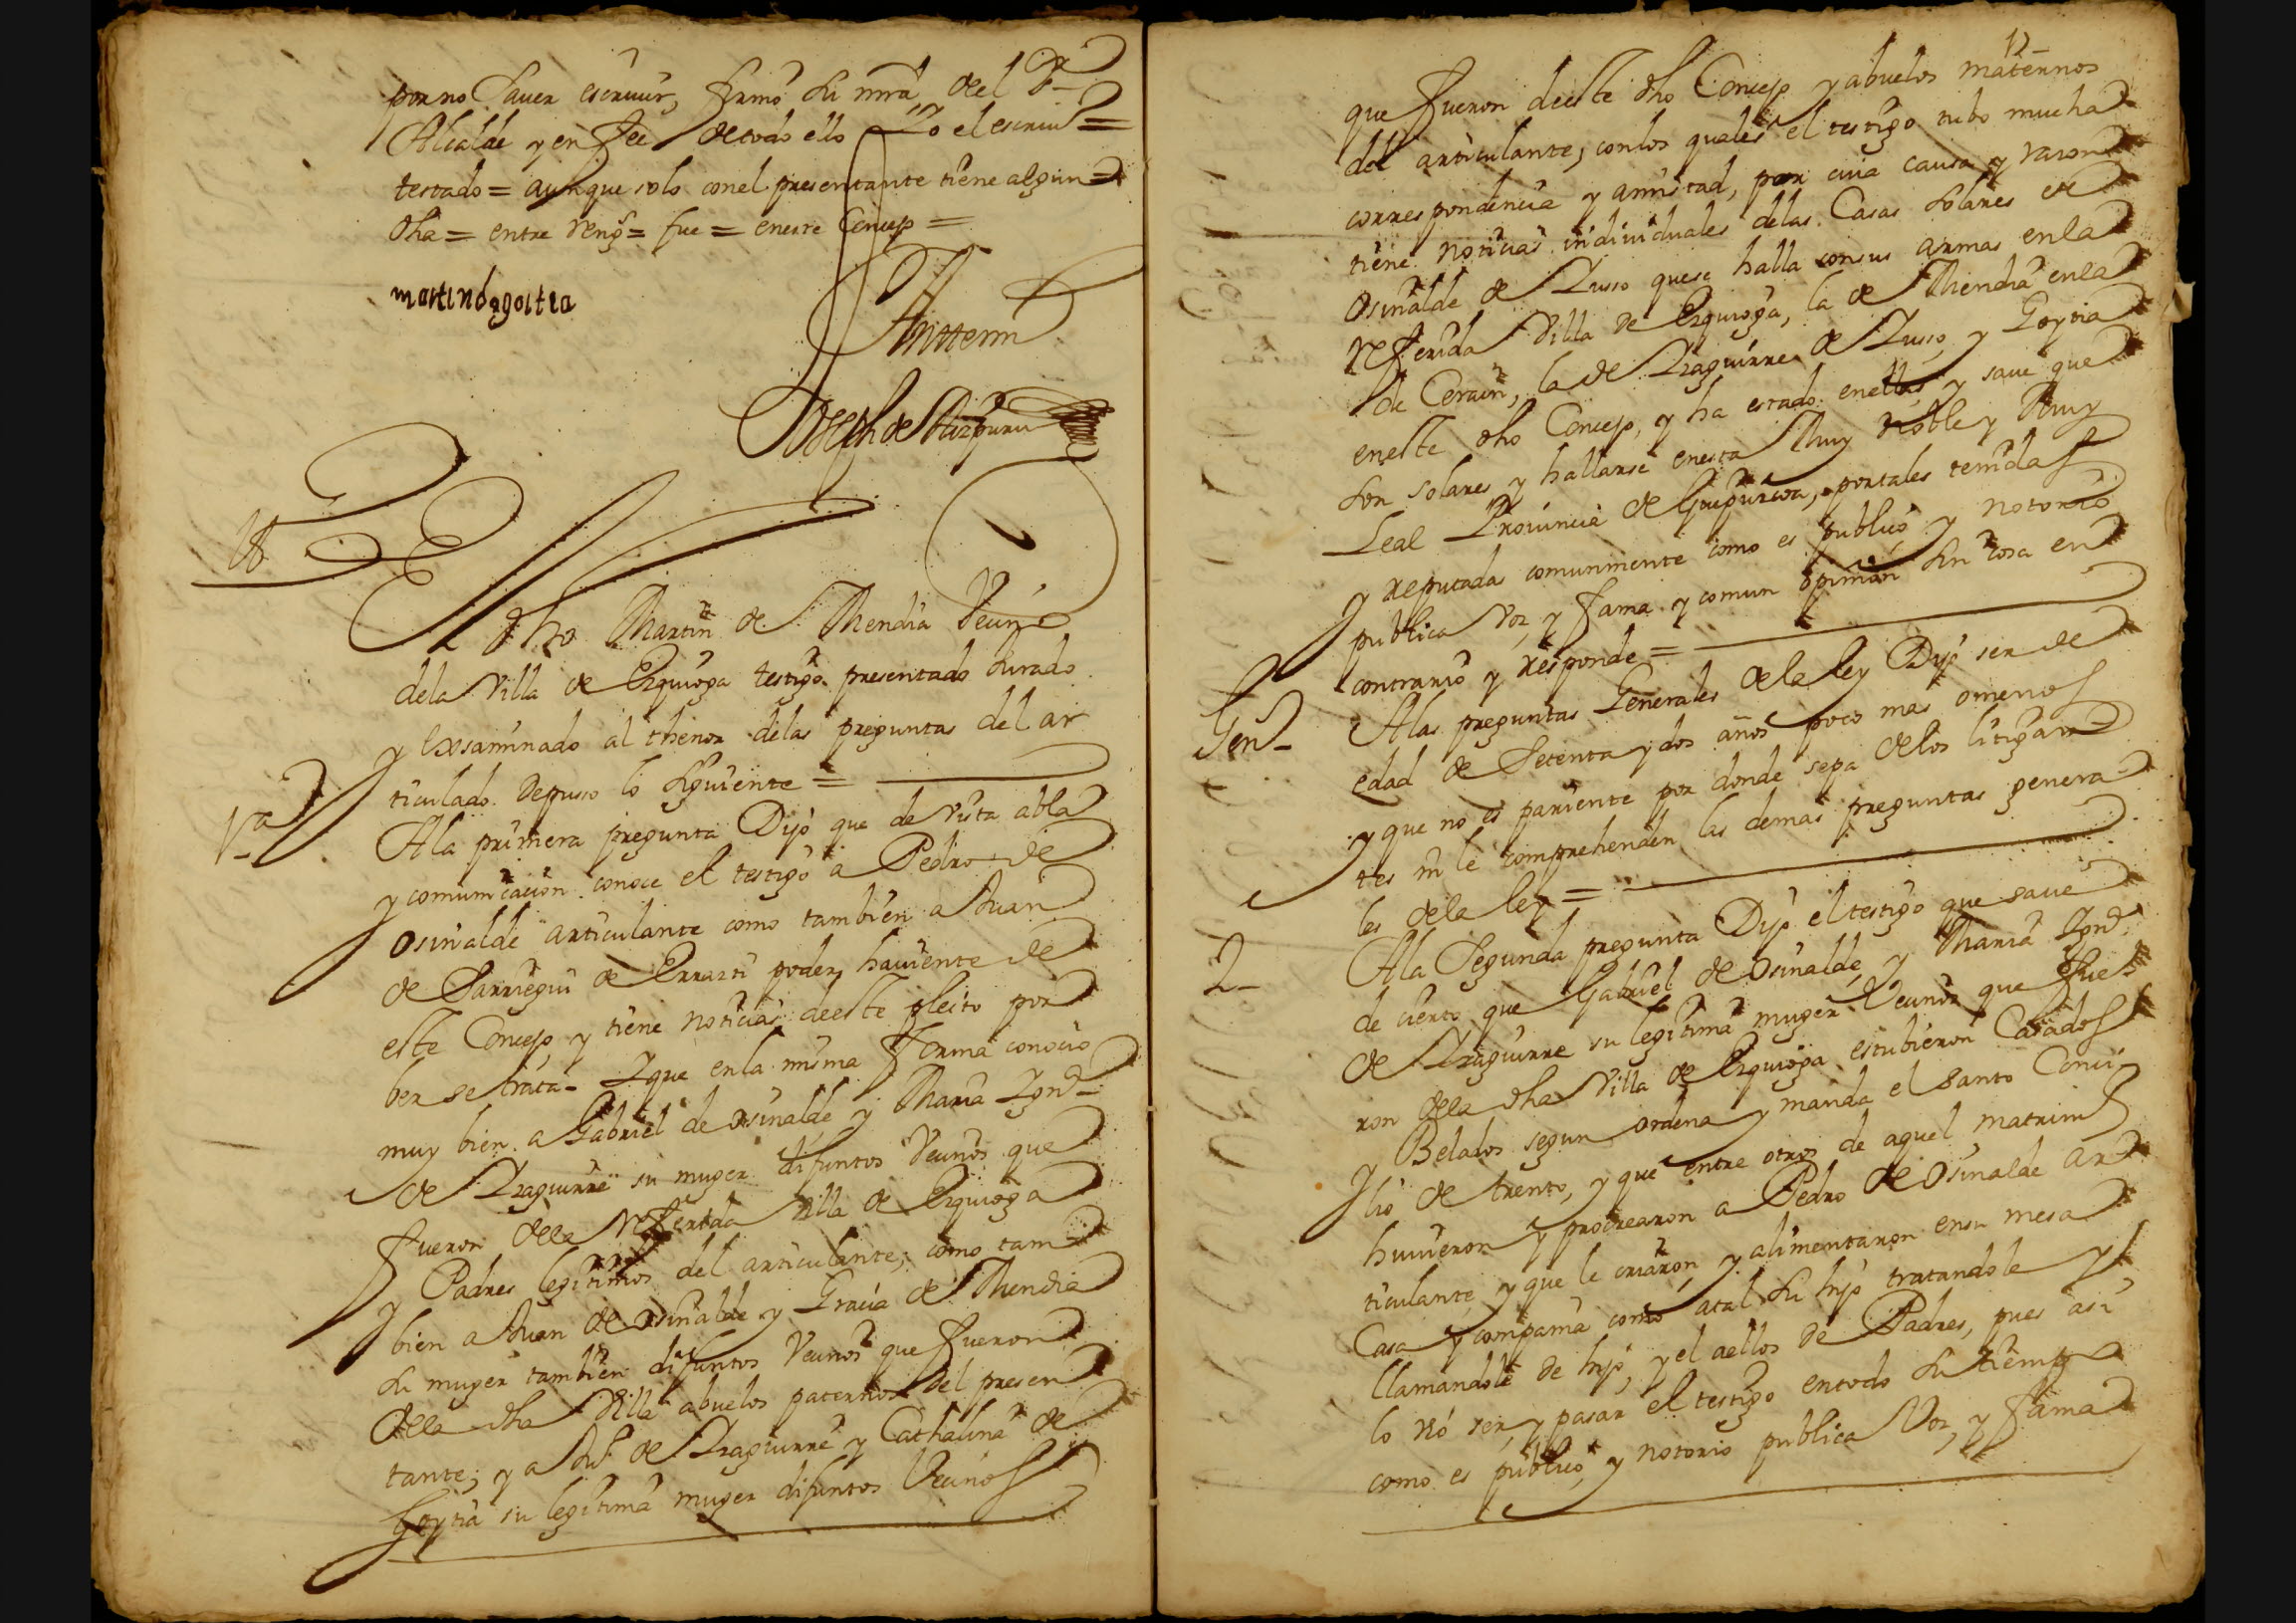 por no saver escriuir, firmó su mrd, del Sr
Alcalde y en fee de todo ello Yo el escriuº =
testado = aunque solo con el presentante tiene algun =
dha = entre rengˢ = fue = en este Concejo =
martin dagoitia
Antte mi
Joseph de Aizpuru
tº
El dho Martin de Mendia Vecinº
de la Villa de Ezquioga testigo presentado Jurado
y exsaminado al thenor de las preguntas del ar
ticulado. Depusso lo siguiente =
1ª
A la primera pregunta Dijo que de vista abla
y comunicacion conoce el testigo a Pedro de
Osinalde articulante como tambien a Juan
de Sarriegui de Errazti poder hauiente de
este Concejo, y tiene noticias de este pleito por
ber se trata - Y que en la misma forma conocio
muy bien a Gabriel de osinalde y Maria Ygnª
de Yzaguirre su muger difuntos Vecinos que
fueron de la referida Villa de Ezquioga
y Padres legitimos del articulante; como tam
bien a Juan de osinalde y Gracia de Mendia
su muger tambien difuntos Vecinos que fueron
de la dha Villa abuelos paternos del presen
tante; y a Juº de Yzaguirre y Cathalina de
Goytia su legitima muger difuntos Vecinos
12
que fueron de este dho Concejo y abuelos maternos
del articulante, con los quales el testigo tubo mucha
correspondencia y amistad, por cuia causa y razon
tiene noticias indiuiduales de las Casas Solares de
Osinalde de Zusso que se halla con sus armas en la
referida Villa de Ezquioga, la de Mendia en la
de Cerain, la de Yzaguirre de Zusso, y Goytia
en este dho Concejo, y ha estado en ellas, y saue que
son solares y hallarse en esta Muy Noble y Muy
Leal Prouincia de Guipuzcoa, y por tales tenidas
y reputadas comunmente como es publico y notorio
publica voz, y fama y comun opinion sin cosa en
contrario y responde =
Gen-
A las preguntas Generales de la ley Dijo ser de
edad de Setenta y dos años poco mas o menos
y que no es pariente por donde sepa de los litigan
tes ni le comprehenden las demas preguntas genera
les de la ley =
2-
A la Segunda pregunta Dijo el testigo que saue
de cierto que Gabriel de osinalde, y Maria Ygnª
de Yzaguirre su legitima muger Vecinos que fue
ron de la dha Villa de Ezquioga estubieron Casados
y Belados segun ordena y manda el santo Conci
lio de trento, y que entre otros de aquel matrimº
huuieron y procrearon a Pedro de Osinalde ar
ticulante, y que le criaron y alimentaron en su mesa
Casa y compañia como a tal su hijo tratandole y
llamandole de hijo, y el a ellos de Padres, pues asi
lo vió ser, y pasar el testigo en todo su tiempo
como es publico, y notorio publica Voz, y fama